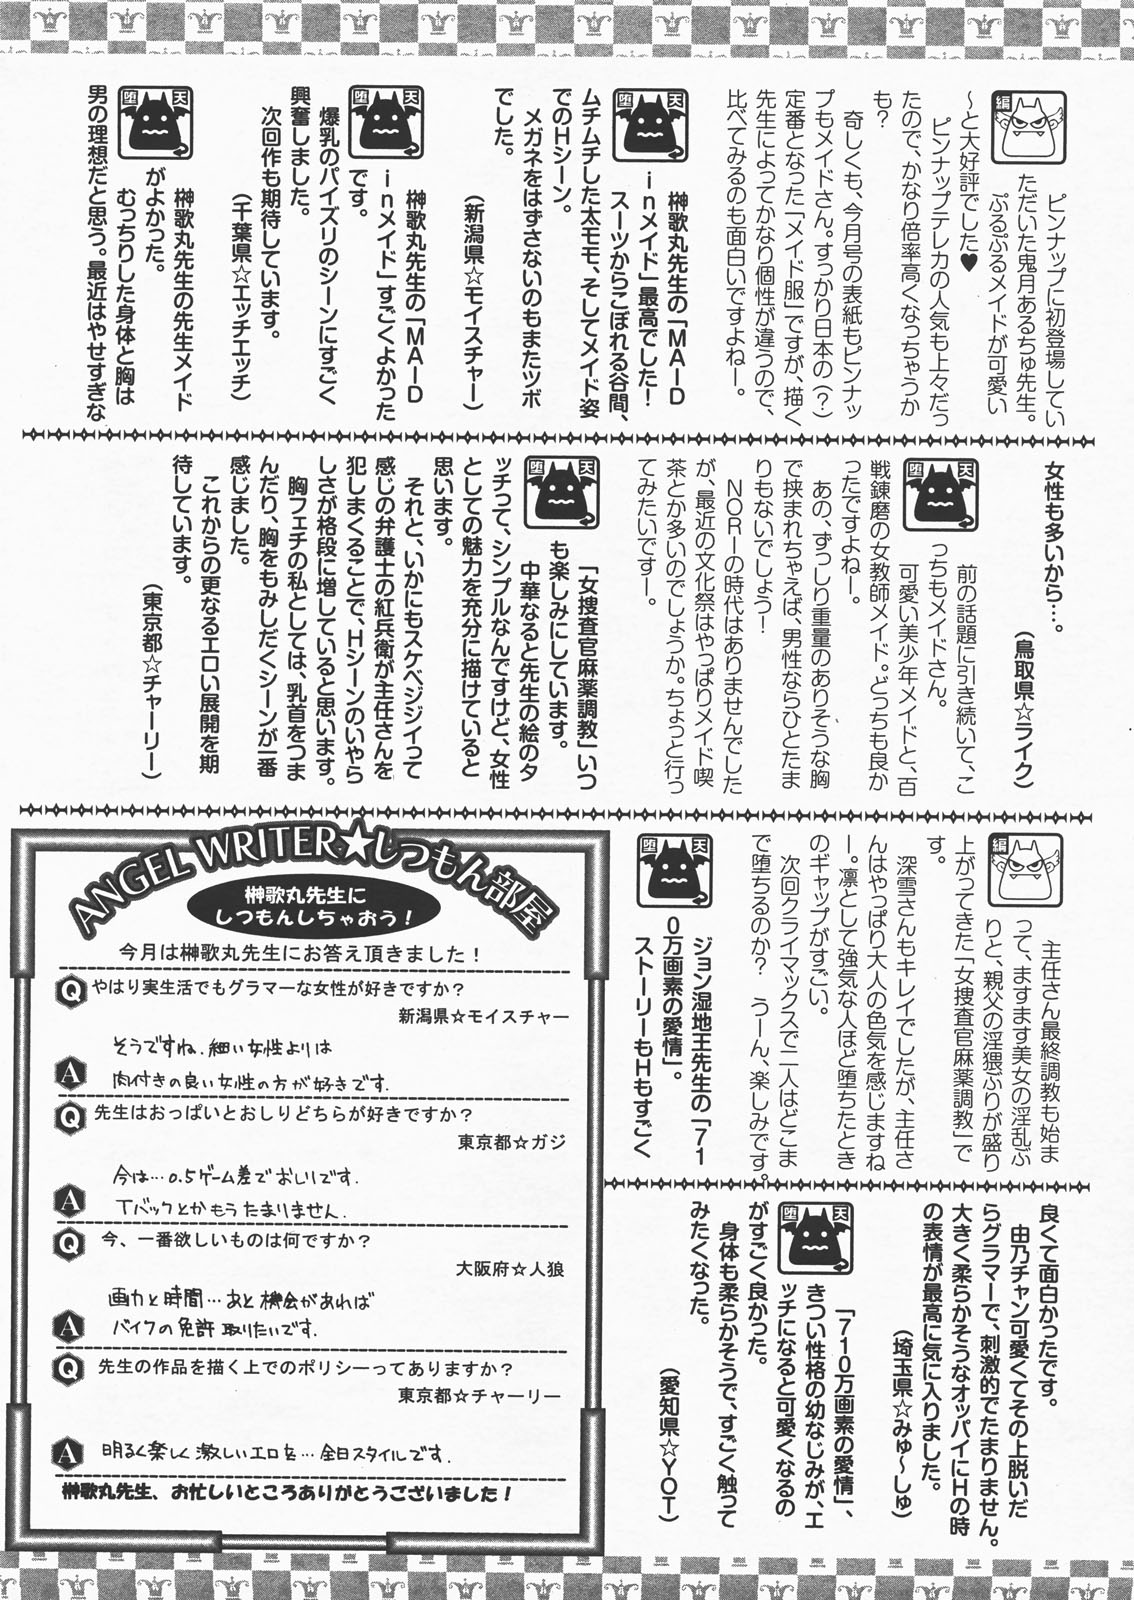 ピンナップに初登場してい
ただいた鬼月あるちゅ先生。
ぷるぷるメイドが可愛い
～と大好評でした♥
ピンナップテレカの人気も上々だっ
たので、かなり倍率高くなっちゃうか
も？
奇しくも、今月号の表紙もピンナッ
プもメイドさん。すっかり日本の（？）
定番となった「メイド服」ですが、描く
先生によってかなり個性が違うので、
比べてみるのも面白いですよねー。
編
榊歌丸先生の「ＭＡｉＤ
ｉｎメイド」最高でした！
スーツからこぼれる谷間、
ムチムチした太モモ、そしてメイド姿
でのＨシーン。
メガネをはずさないのもまたツボ
でした。
（新潟県☆モイスチャー）
堕天
榊歌丸先生の「ＭＡｉＤ
ｉｎメイド」すごくよかった
です。
爆乳のパイズリのシーンにすごく
興奮しました。
次回作も期待しています。
（千葉県☆エッチエッチ）
堕天
榊歌丸先生の先生メイド
がよかった。
むっちりした身体と胸は
男の理想だと思う。最近はやせすぎな
堕天
女性も多いから…。
（鳥取県☆ライク）
前の話題に引き続いて、こ
っちもメイドさん。
可愛い美少年メイドと、百
戦錬磨の女教師メイド。どっちも良か
ったですよねー。
あの、ずっしり重量のありそうな胸
で挟まれちゃえば、男性ならひとたま
りもないでしょう！
ＮＯＲＩーの時代はありませんでした
が、最近の文化祭はやっぱりメイド喫
茶とか多いのでしょうか。ちょっと行っ
てみたいですー。
堕天
「女捜査官麻薬調教」いつ
も楽しみにしています。
中華なると先生の絵のタ
ッチって、シンプルなんですけど、女性
としての魅力を充分に描けていると
思います。
それと、いかにもスケベジジイって
感じの弁護士の紅兵衛が主任さんを
犯しまくることで、Ｈシーンのいやら
しさが格段に増していると思います。
胸フェチの私としては、乳首をつま
んだり、胸をもみしだくシーンが一番
感じました。
これからの更なるエロい展開を期
待しています。
（東京都☆チャーリー）
堕天
主任さん最終調教も始ま
って、ますます美女の淫乱ぶ
りと、親父の淫猥ぶりが盛り
上がってきた「女捜査官麻薬調教」で
す。
深雪さんもキレイでしたが、主任さ
んはやっぱり大人の色気を感じますね
ー。凛として強気な人ほど堕ちたとき
のギャップがすごい。
次回クライマックスで二人はどこま
で堕ちるのか？　うーん、楽しみです。
編
ジョン湿地王先生の「７１
０万画素の愛情」。
ストーリーもＨもすごく
堕天
良くて面白かったです。
由乃チャン可愛くてその上脱いだ
らグラマーで、刺激的でたまりません。
大きく柔らかそうなオッパイにＨの時
の表情が最高に気に入りました。
（埼玉県☆みゅ～しゅ）
「７１０万画素の愛情」、
きつい性格の幼なじみが、エ
ッチになると可愛くなるの
がすごく良かった。
身体も柔らかそうで、すごく触って
みたくなった。
（愛知県☆ＹＯＴ）
堕天
ANGEL WRITER★しつもん部屋
榊歌丸先生に
しつもんしちゃおう！
今月は榊歌丸先生にお答え頂きました！
Q やはり実生活でもグラマーな女性が好きですか？
新潟県☆モイスチャー
そうですね．細い女性よりは
A 肉付きの良い女性の方が好きです．
Q 先生はおっぱいとおしりどちらが好きですか？
東京都☆ガジ
今は…0.5ゲーム差でおしりです．
A Tバックとかもうたまりません．
Q 今、一番欲しいものは何ですか？
大阪府☆人狼
画力と時間…あと機会があれば
A バイクの免許取りたいです．
Q 先生の作品を描く上でのポリシーってありますか？
東京都☆チャーリー
A 明るく楽しく激しいエロを…全日スタイルです．
榊歌丸先生、お忙しいところありがとうございました！